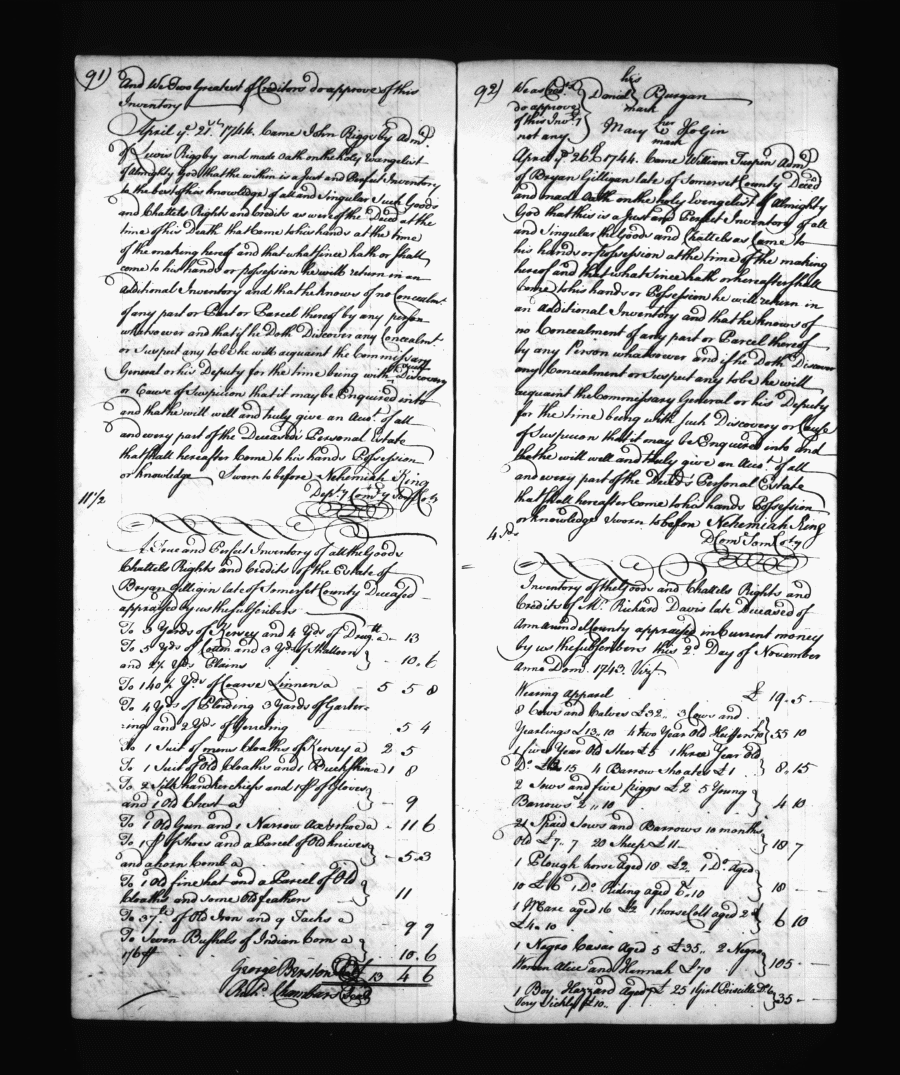 91)
And We Two Greatest of Creditors do approve of this
Inventory
April ye 21st 1744. Came John Riggsby Admr
of Lewis Rigsby and made Oath on the holy Evangelist
of Almighty God that the within is a Just and Perfect Inventory
to the best of his knowledge of all and Singular Such Goods
and Chattels Rights and Credits as were of the Deced at the
time of his Death that Came to his hands at the time
of the making hereof and that what since hath or shall
come to his hands or possession he will return in an
Additional Inventory and that he knows of no Concealmt
of any part or Parcel thereof by any person
whatsoever and that if he Doth Discover any Concealmt
or Suspect any to be he will acquaint the Commissary
General or his Deputy for the time being with Such Discovery
or Cause of Suspicion that it may be Enquired into
and that he will well and truly give an Acct of all
and every part of the Deceaseds Personal Estate
that shall hereafter Come to his hands Possession
or knowledge Sworn to before Nehemiah King
Depty Comy Somt Coty
11 1/2
A True and Perfect Inventory of all the Goods
Chattels Rights and Credits of the Estate of
Bryan Gilligin late of Somerset County Deceased
appraised by us the subscribers
To 3 Yards of Kersey and 4 Yds of Drugtt a - 13
To 5 yds of Cotten and 3 Yds of Shalloon
and 2 1/4 Yds Plains - 10. 6
To 140 1/2 Yds of Coarse Linnen a 5 5 8
To 4 Yds of Plading 3 Yards of Garter-
ing and 2 Yds of 5 4
To 1 Suit of mens Cloaths of Kersey a 2 5
To 1 Suit of Old Cloaths and 1 Buckskin a 1 8
To 2 Silk handkerchiefs and 1 pr of Gloves
and 1 Old Chest a - 9
To 1 Old Gun and 1 Narrow Axe a - 11 6
To 1 pr of shoes and a Parcel of Old knives
and a horn Comb a - 5.3
To 1 Old fine hat and a Parcel of Old
Cloaths and some Old feathers 11
To 37 lt of Old Iron and 9 Tacks a 9 9
To Seven Bushels of Indian Corn a
1/6 - 10. 6
George Benston 13 4 6
Chambers
92)
We as Credts
do approve
of this Invty
not any
his
Daniel Burgan
mark
her
Mary Holgin
mark
April ye 26th 1744. Came William Turpin Admr
of Bryan Gilligan late of Somerset County Deced
and made Oath on the holy Evangelist of Almighty
God that this is a Just and Perfect Inventory of all
and Singular the Goods and Chattels as Came to
his hands or possession at the time of the making
hereof and that what since hath or hereafter shall
Come to his hands or Possession he will return in
an Additional Inventory and that he knows of
no Concealment of any part or Parcel thereof
by any Person whatsoever and if he Doth Discover
any Concealment or Suspect any to be he will
acquaint the Commissary General or his Deputy
for the time being with Such Discovery or Cause
of Suspicion that it may be Enquired into and
that he will well and truly give an Acct of all
and every part of the Deceds Personal Estate
that shall hereafter come to his hands Possession
or knowledge Sworn to before Nehemiah King
D Com Somt Coty
4 Sds
Inventory of the Good and Chattels Rights and
Credits of Mr Richard Davis late Deceased of
Ann arund County appraised in Current money
by us the subscribers this 2d Day of November
Anno Dom. 1743. Vizt
Wearing apparel £ 19..5
8 Cows and Calves £32.. 3 Cows and
Yearlings £13.10 4 two Year Old Heiffers 10 55 10
1 five Year Old Steer £3 1 three Year Old
Do 15 4 Barrow Shoates £1 8.15
2 Sows and five piggs £2 5 Young
Barrows 2..10 4 10
21 Spaid Sows and Barrows 10 months
Old £7..7 20 Sheep £11 18 7
1 Plough horse Aged 10 £2.. 1 Do Aged
10 £6 1 Do Riding aged 6..10 18 -
1 Mare aged 16 £2 1 horse Colt aged 2
£4.10 6 10
1 Negro Cæsar Aged 5 £35.. 2 Negro
Women Alice and Hannah £70 105
1 Boy Hazzard Aged £25 1 Girl Priscilla Do
Very Sickly £10.. 35